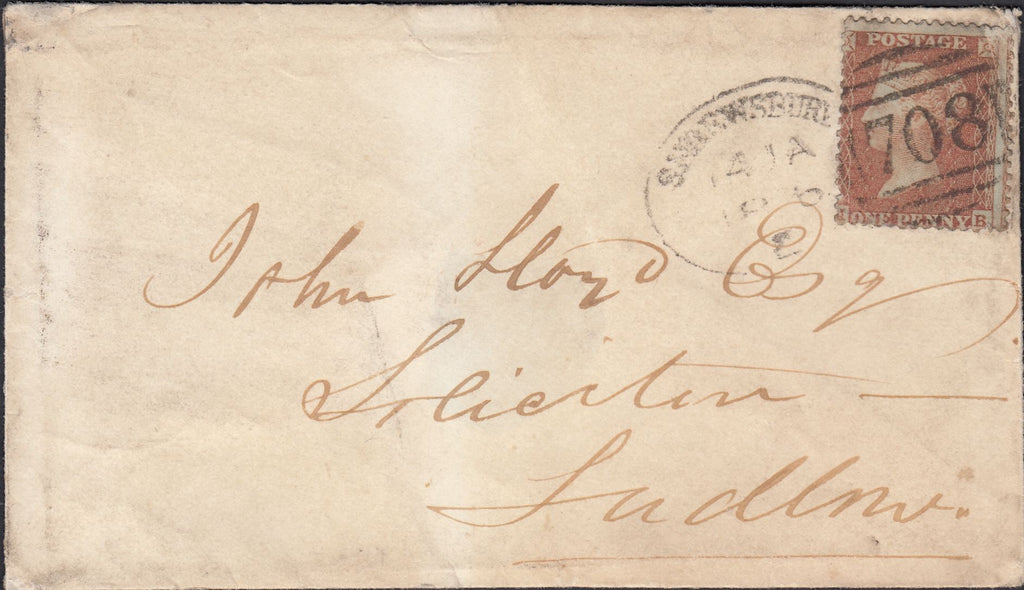 POSTAGE
708
ONE PENNY
B
SHREWSBURY
JA
John Lloyd Esq
Solicitor
Ludlow.